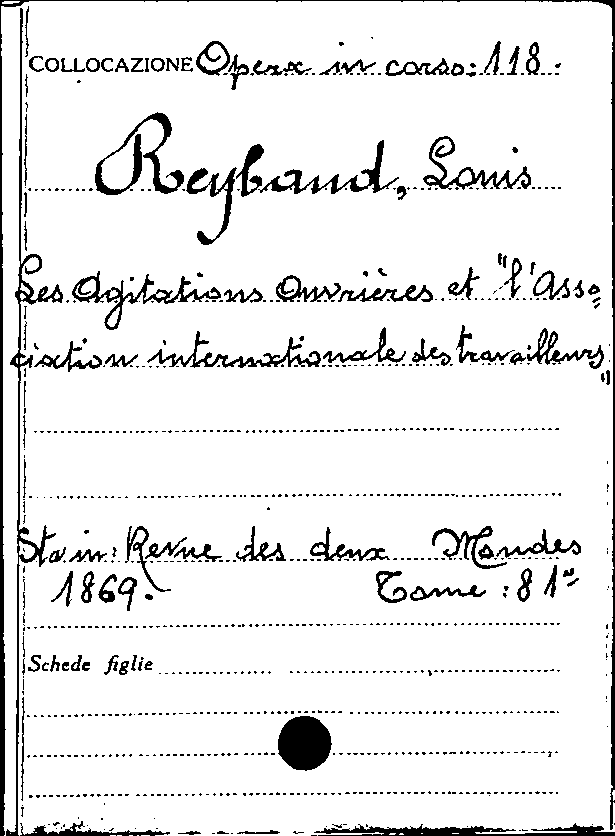 COLLOCAZIONE Opera in corso: 118.
Reybaud, Louis
Les Agitations Ouvrières et "l'Asso=
ciation internationale des travailleurs"
Sta in: Revue des deux Mondes
1869. Tome: 81º
Schede figlie